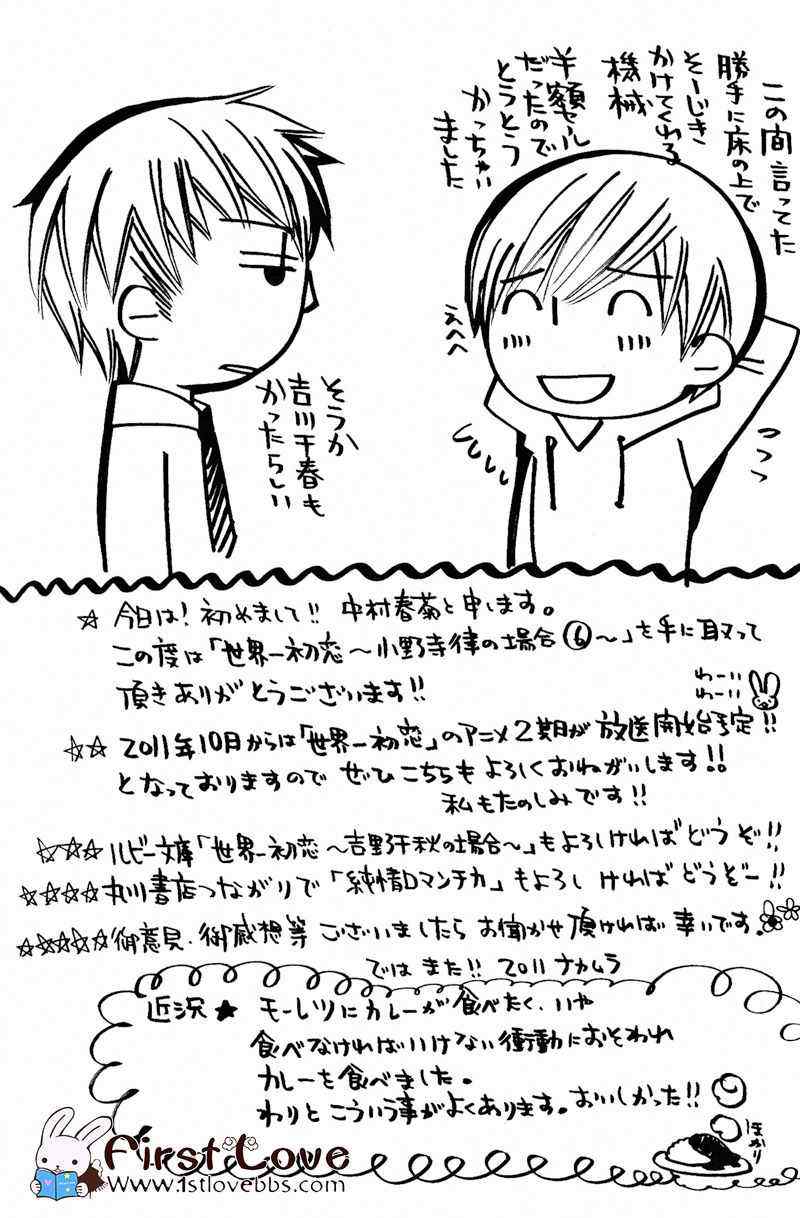 この間言ってた
勝手に床の上で
そーじき
かけてくれる
機械
半額セール
だったので
とうとう
かっちゃい
ました
えへへ
そうか
吉川千春も
かったらしい
☆ 今日は! 初めまして!! 中村春菊と申します。
この度は「世界一初恋～小野寺律の場合⑥～」を手に取って
頂きありがとうございます!!
わーい
わーい
☆☆ 2011年10月からは「世界一初恋」のアニメ2期が放送開始予定!!
となっておりますので ぜひこちらもよろしくおねがいします!!
私もたのしみです!!
☆☆☆ ルビー文庫「世界一初恋～吉野千秋の場合～」もよろしければどうぞ!!
☆☆☆☆ 丸川書店つながりで「純情ロマンチカ」もよろしければどうぞー!!
☆☆☆☆☆ 御意見、御感想等ございましたらお聞かせ頂ければ幸いです。
ではまた!! 2011 ナカムラ
近況★ モーレツにカレーが食べたく、いや
食べなければいけない衝動におそわれ
カレーを食べました。
わりとこういう事がよくあります。おいしかった!!
ほかり
First Love
www.1stlovebbs.com